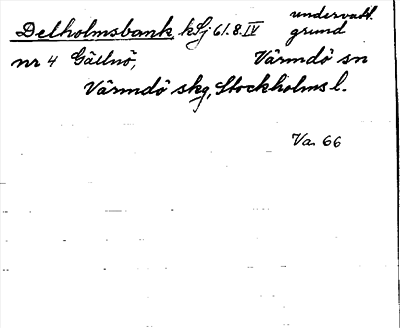 Delholmsbank, kSj 61.8.IV undervatt.
grund
nr 4 Gällnö, Värmdö sn
Värmdö skg, Stockholms l.
Va. 66